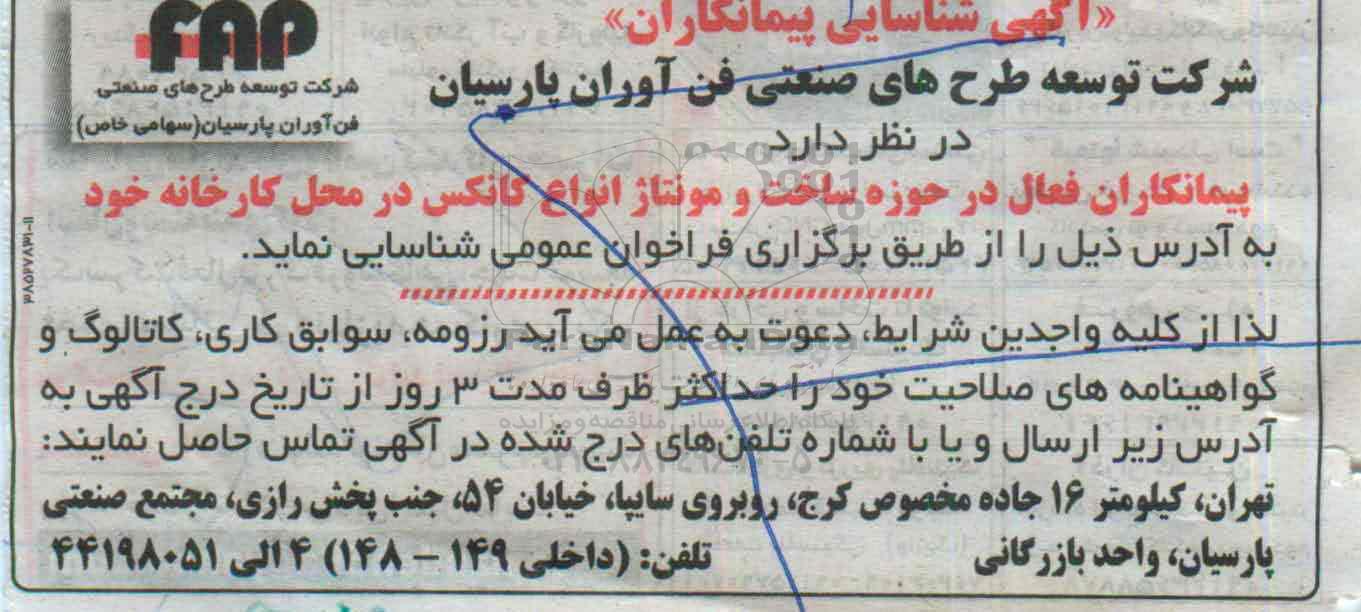 «آگهی شناسایی پیمانکاران»
FAP
شرکت توسعه طرح های صنعتی
فن آوران پارسیان(سهامی خاص)
شرکت توسعه طرح های صنعتی فن آوران پارسیان
در نظر دارد
پیمانکاران فعال در حوزه ساخت و مونتاژ انواع کانکس در محل کارخانه خود
به آدرس ذیل را از طریق برگزاری فراخوان عمومی شناسایی نماید.
لذا از کلیه واجدین شرایط، دعوت به عمل می آید رزومه، سوابق کاری، کاتالوگ و
گواهینامه های صلاحیت خود را حداکثر ظرف مدت ۳ روز از تاریخ درج آگهی به
آدرس زیر ارسال و یا با شماره تلفن‌های درج شده در آگهی تماس حاصل نمایند:
تهران، کیلومتر ۱۶ جاده مخصوص کرج، روبروی سایپا، خیابان ۵۴، جنب پخش رازی، مجتمع صنعتی
پارسیان، واحد بازرگانی
تلفن: (داخلی ۱۴۹ – ۱۴۸) ۴ الی ۴۴۱۹۸۰۵۱